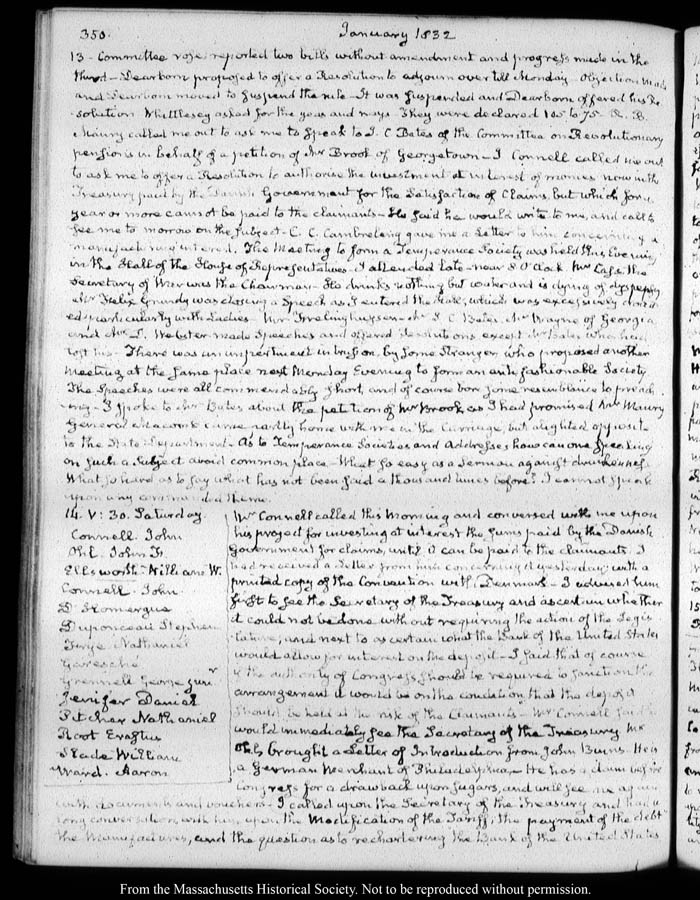 350.
January 1832
13 - Committee rose, reported two bills without amendment and progress made in the
third - Dearborn proposed to offer a Resolution to adjourn over till Monday - Objection made
and Dearborn moved to suspend the rule - It was suspended and Dearborn offered his Re-
-solution Whittlesey asked for the yeas and nays. They were declared 105 to 75. R. B.
Maury called me out to ask me to speak to I. C Bates of the Committee on Revolutionary
pensions in behalf of a petition of Mr Brook of Georgetown - J Connell called me out
to ask me to offer a Resolution to authorise the investment at interest of monies now in the
Treasury paid by the Danish Government for the Satisfaction of Claims, but which for a
year or more cannot be paid to the claimants - He said he would write to me, and call to
see me to morrow on the subject - C. C. Cambreleng gave me a Letter to him concerning a
manufacturing interest. The Meeting to form a Temperance Society was held this Evening
in the Hall of the House of Representatives - I attended late - near 8 O'Clock Mr Cass the
Secretary of War was the Chairman - He drinks nothing but water and is dying of dyspepsy
Mr Felix Grundy was closing a Speech as I entered the Hall, which was excessively crowd-
ed particularly with Ladies - Mr Frelinghuysen - Mr I C Bates Mr Wayne of Georgia
and Mr D. Webster made Speeches and offered Resolutions except Mr Bates who had
lost his - There was an impertinent intrusion, by some Stranger who proposed another
meeting at the same place next Monday Evening to form an anti fashionable Society
The Speeches were all commendably short, and of course bore some resemblance to preach-
-ing - I spoke to Mr Bates about the petition of Mr Brook, as I had promised Mr Maury
General Macomb came partly home with me in the Carriage, but alighted opposite
to the State Department - As to Temperance Societies and Addresses, how can one speaking
on such a Subject avoid common place - What so easy as a Sermon against drunkenness
What so hard as to say what has not been said a thousand times before? I cannot speak
upon any commanded theme.
14. V: 30. Saturday.
Connell. John
Ohl. John Fr.
Ellsworth. William W.
Connell. John.
D'Homergue
Duponceau Stephen
Sirge. Nathaniel
Garesché
Grennell George junr
Jenifer Daniel
Pitcher Nathaniel
Root Erastus
Slade William
Ward. Aaron
Mr Connell called this Morning and conversed with me upon
his project for investing at interest the sums paid by the Danish
Government for claims, until it can be paid to the claimants. I
had received a Letter from him concerning it yesterday with a
printed copy of the Convention with Denmark - I advised him
first to see the Secretary of the Treasury and ascertain whether
it could not be done without requiring the action of the Legis-
-lature, and next to ascertain what the Bank of the United States
would allow for interest on the deposit - I said that of course
if the authority of Congress should be required to sanction the
arrangement it would be on the condition that the deposit
should be held at the risk of the Claimants - Mr Connell said he
would immediately see the Secretary of the Treasury Mr
Ohl, brought a Letter of Introduction from John Burns. He is
a German Merchant of Philadelphia - He has a claim before
Congress for a drawback upon Sugars, and will see me again
with documents and vouchers. I called upon the Secretary of the Treasury and had a
long conversation with him upon the Modification of the Tariff, the payment of the debt
the Manufactures, and the question as to rechartering the Bank of the United States
From the Massachusetts Historical Society. Not to be reproduced without permission.